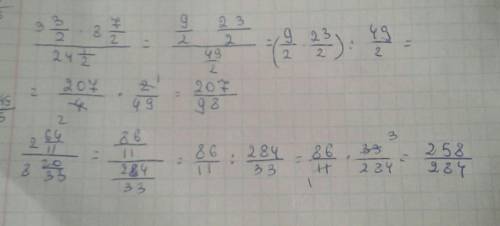 (3 3/2 · 8 7/2) / (24 1/2) = (9/2 · 23/2) / (49/2) = (9/2 · 23/2) : 49/2 =
= 207/4 · 2/49 = 207/98
(2 64/11) / (8 20/33) = (86/11) / (284/33) = 86/11 : 284/33 = 86/11 · 33/284 = 258/284